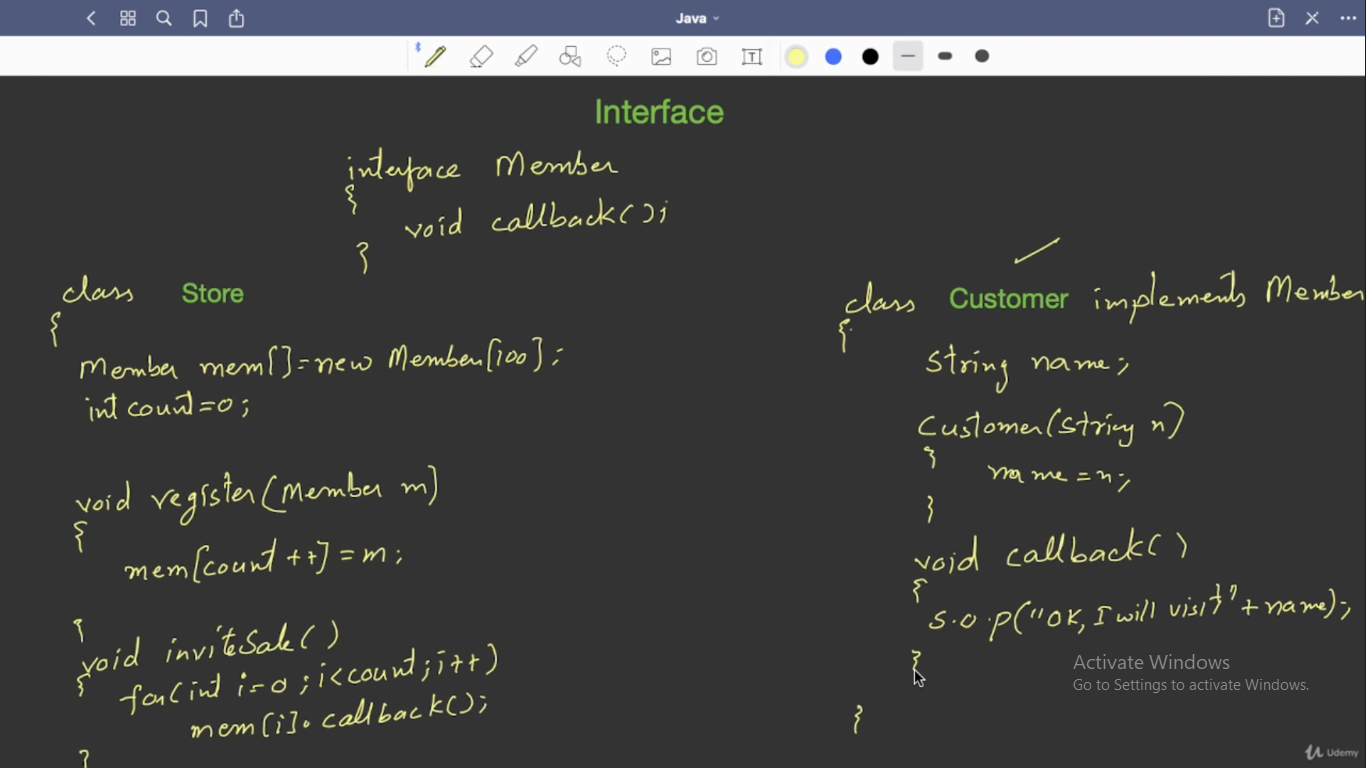 Java
Interface
interface Member
{
void callback();
}
class Store
{
Member mem[]=new Member[100];
int count=0;
void register(Member m)
{
mem[count++]=m;
}
void inviteSale()
{
for(int i=0;i<count;i++)
mem[i].callback();
}
class Customer implements Member
{
String name;
Customer(String n)
{
name=n;
}
void callback()
{
S.o.p("OK, I will visit"+name);
}
}
Activate Windows
Go to Settings to activate Windows.
Udemy